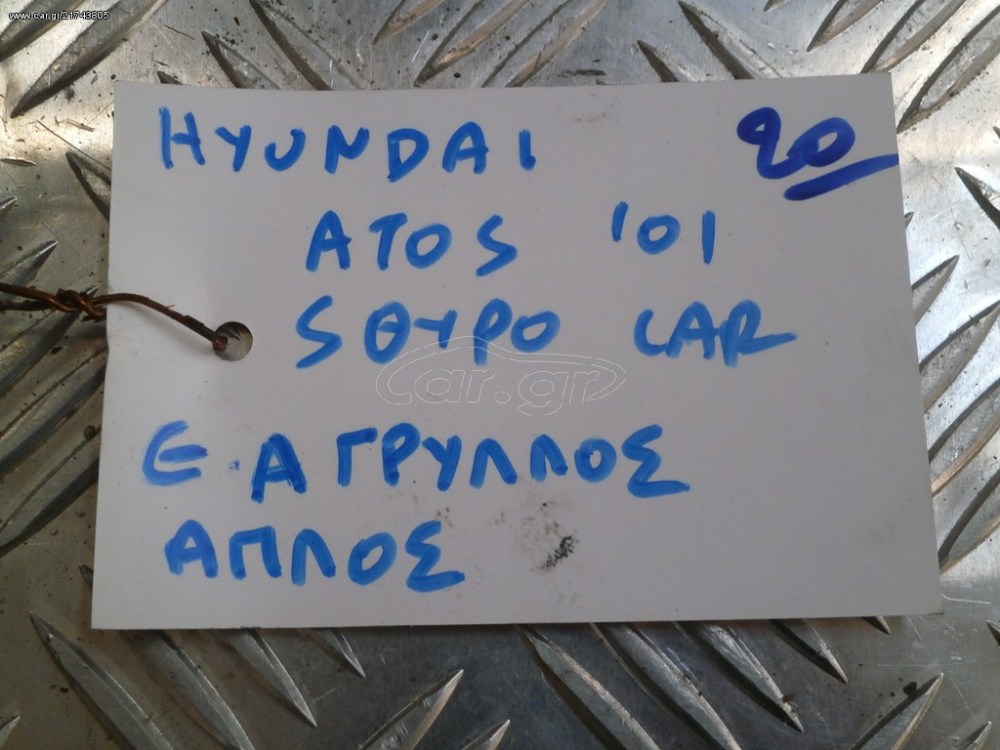 www.car.gr/21743805
HYUNDAI 20
ATOS '01
5ΘΥΡΟ CAR
car.gr
Ε.Α ΓΡΥΛΛΟΣ
ΑΠΛΟΣ